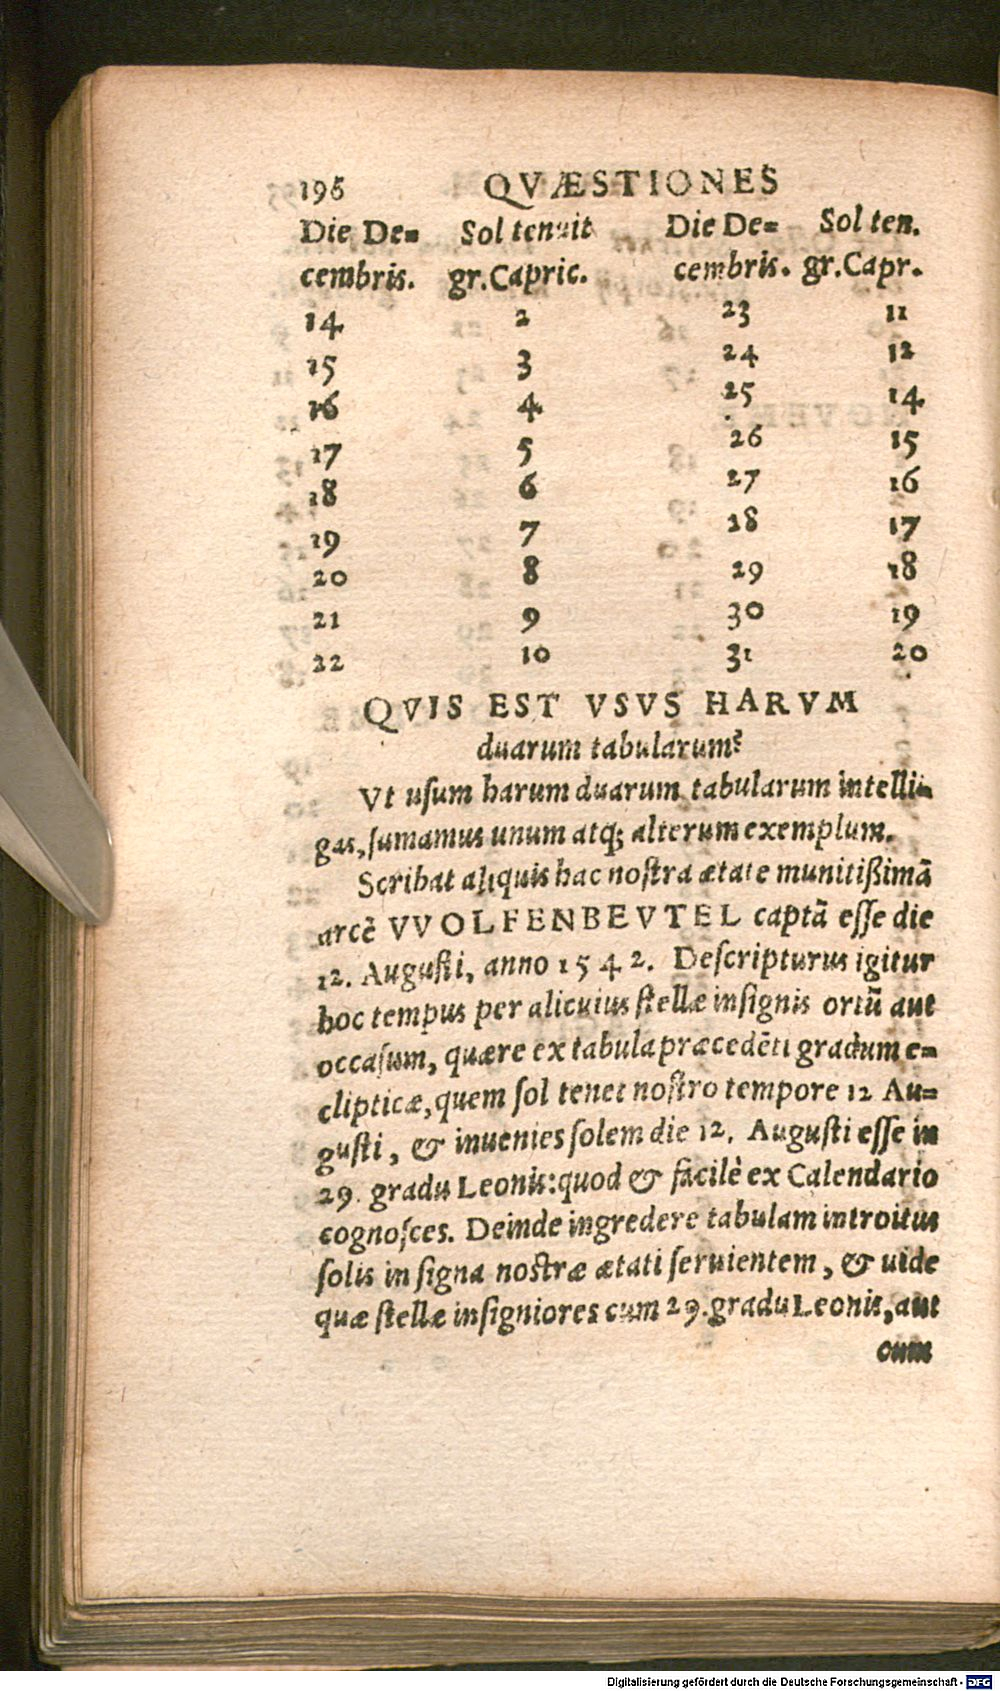 196 QVÆSTIONES
Die De= Sol tenuit Die De= Sol ten.
cembris. gr. Capric. cembris. gr. Capr.
14 2 23 11
15 3 24 12
16 4 25 14
17 5 26 15
18 6 27 16
19 7 28 17
20 8 29 18
21 9 30 19
22 10 31 20
QVIS EST VSVS HARVM
duarum tabularum?
Vt uſum harum duarum tabularum intelli=
gas, ſumamus unum atq; alterum exemplum.
Scribat aliquis hac noſtra ætate munitißimã
arcẽ VVOLFENBEVTEL captã eſſe die
12. Auguſti, anno 1542. Deſcripturus igitur
hoc tempus per alicuius ſtellæ inſignis ortũ aut
occaſum, quære ex tabula præcedẽti gradum e=
clipticæ, quem ſol tenet noſtro tempore 12 Au=
guſti, & inuenies ſolem die 12. Auguſti eſſe in
29. gradu Leonis: quod & facilè ex Calendario
cognoſces. Deinde ingredere tabulam introitus
ſolis in ſigna noſtræ ætati ſeruientem, & uide
quæ ſtellæ inſigniores cum 29. gradu Leonis, aut
cum
Digitalisierung gefördert durch die Deutsche Forschungsgemeinschaft - DFG